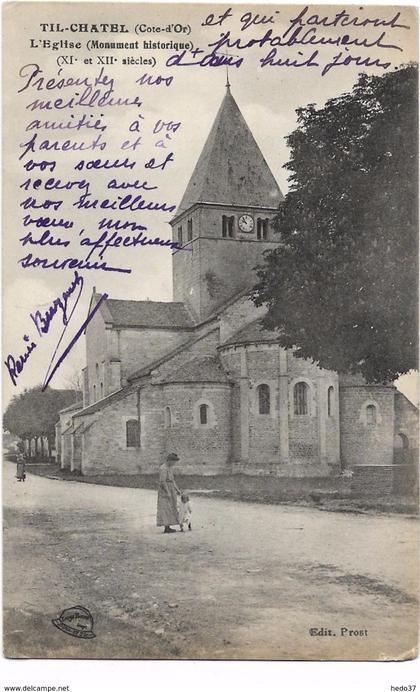 TIL-CHATEL (Cote-d'Or)
L'Eglise (Monument historique)
(XI° et XII° siècles)
et qui partiront
probablement
dans huit jours.
Présentez nos
meilleures
amitiés à vos
parents et à
vos sœurs et
recevez avec
nos meilleurs
vœux mon
plus affectueux
souvenir
René
Edit. Prost
hedo37